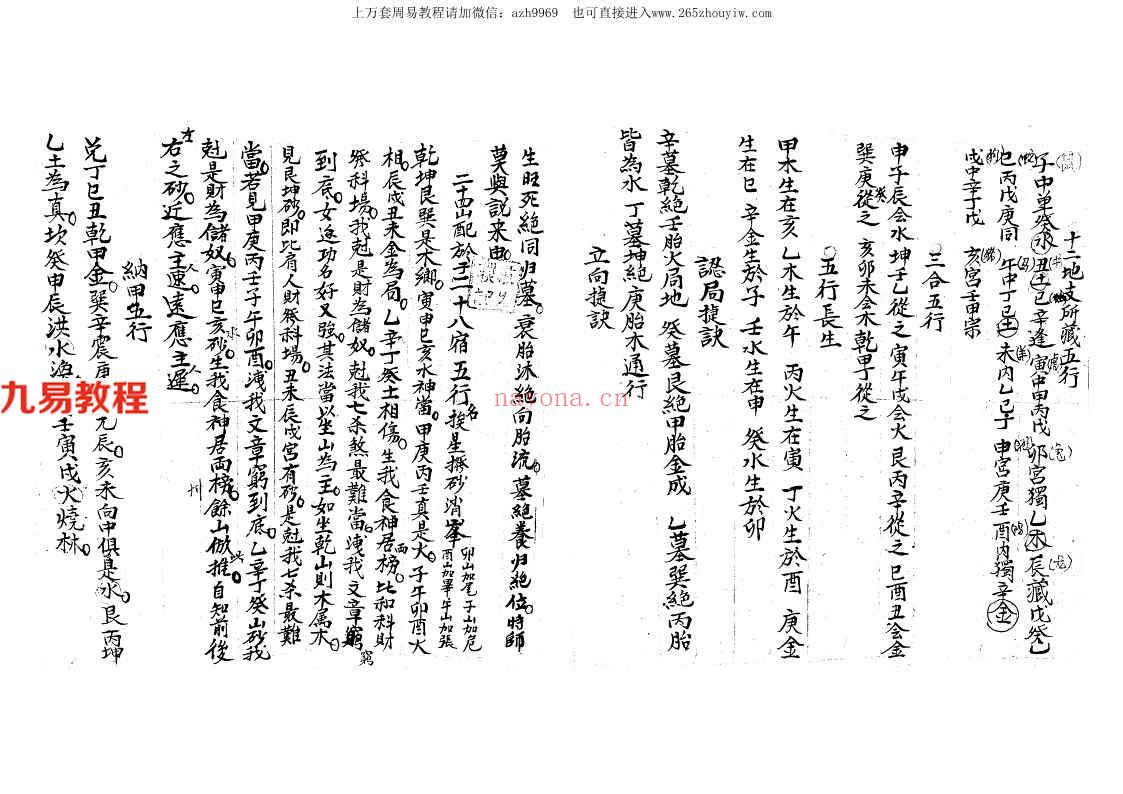 上万套周易教程请加微信：azh9969　也可直接进入www.265zhouyiw.com
十二地支所藏五行
子中單癸水丑土己辛逢寅中甲丙戊卯宮獨乙木辰藏戊癸乙
巳丙戊庚同午中丁己土未內乙己丁申宮庚壬酉內獨辛金
戌中辛丁戊亥宮壬甲宗
三合五行
申子辰会水坤壬乙從之寅午戌会火艮丙辛從之巳酉丑会金
巽庚癸從之亥卯未会木乾甲丁從之
五行長生
甲木生在亥乙木生於午丙火生在寅丁火生於酉庚金
生在巳辛金生於子壬水生在申癸水生於卯
認局捷訣
辛墓乾絕壬胎火局地癸墓艮絕甲胎金成乙墓巽絕丙胎
皆為水丁墓坤絕庚胎木通行
立向捷訣
生旺死絕同归墓。衰胎沐絕向胎流。墓絕養归絕位。時師
莫與說来由。
二十四山配於二十八宿五行名挨星撥砂消峯卯山加尾子山加危酉山加畢午山加張
乾坤艮巽是木鄉。寅申巳亥水神當。甲庚丙壬真是火。子午卯酉火
相。辰戌丑未金為局。乙辛丁癸土相傷。生我食神居兩榜。比和科財
發科場。我尅是財為儲奴。尅我七杀煞最難當。洩我文章窮
到底。女返功名好又強。其法當以坐山為主。如坐乾山則木属木。
見艮坤砂。即比肩人財發科場。丑未辰戌宮有砂。是尅我七杀最難
當。若見甲庚丙壬子午卯酉。洩我文章窮到底。乙辛丁癸山砂我
尅是財為儲奴。寅申巳亥水砂生我食神居兩榜。餘山倣此推。自知前後
左右之砂。近應主速。遠應主運。
納甲五行
兌丁巳丑乾甲金。巽辛震庚亥未
向中俱是水。艮丙坤
乙土為真。坎癸申辰洪水
壬寅戌火燒林。
九易教程
nayona.cn